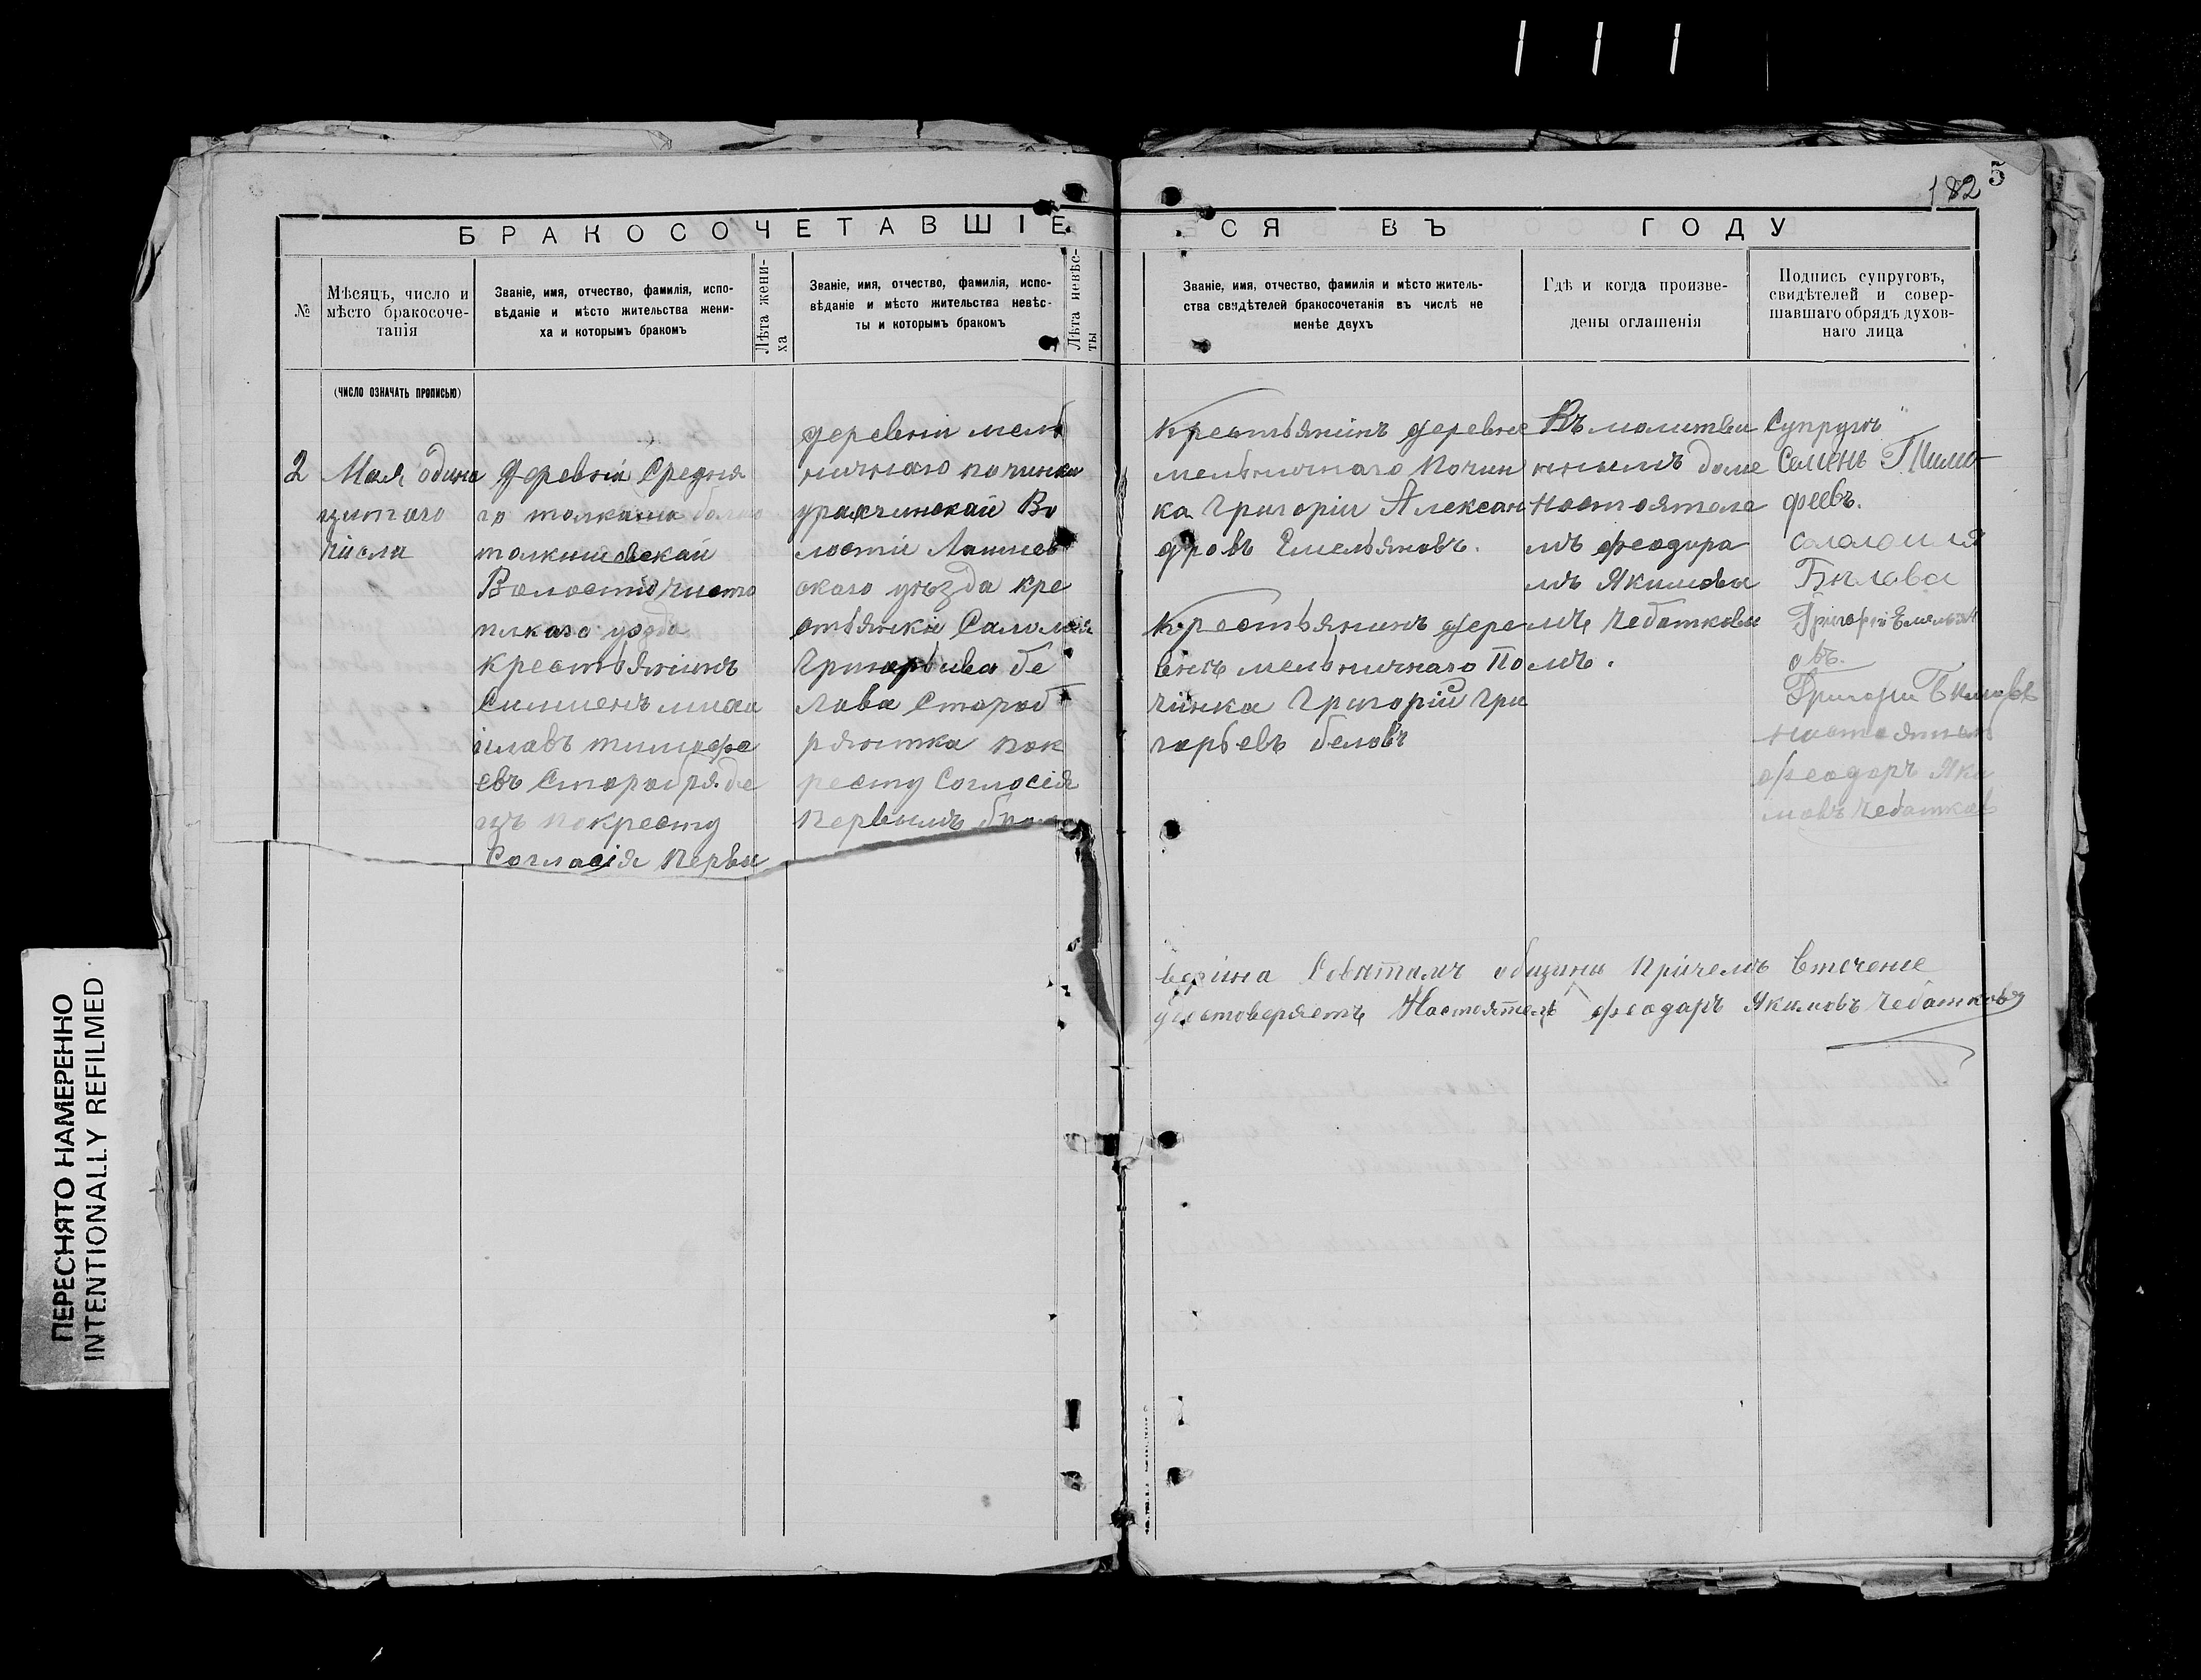 182
5
БРАКОСОЧЕТАВШІЕСЯ ВЪ ГОДУ
№
Мѣсяцъ, число и
мѣсто бракосоче-
танія
Званіе, имя, отчество, фамилія, испо-
вѣданіе и мѣсто жительства жени-
ха и которымъ бракомъ
Лѣта жени-
ха
Званіе, имя, отчество, фамилія, испо-
вѣданіе и мѣсто жительства невѣс-
ты и которымъ бракомъ
Лѣта невѣс-
ты
Званіе, имя, отчество, фамилія и мѣсто житель-
ства свидѣтелей бракосочетанія въ числѣ не
менѣе двухъ
Гдѣ и когда произве-
дены оглашенія
Подпись супруговъ,
свидѣтелей и совер-
шавшаго обрядъ духов-
наго лица
(ЧИСЛО ОЗНАЧАТЬ ПРОПИСЬЮ)
2
Мая одина
цитого
числа
Деревни Средня
го толкиша
толкишевскай
Волости чисто
полкаго
крестьянинъ
Симменъ миха
илавъ тимофе
евъ Старобрядъ
цъ покресту
Согласія Первы
деревни мель
ничнаго починка
урахчинскай Во
лости Лаишев
скаго уѣзда кре
стьянки Саломія
Григорьива бе
лава Старооб
рядка пок
ресту Согласія
Первымъ
Крестьянинъ деревне
мельничнаго Почин
ка Григорiи Алексан
дровъ Емельяновъ.
Крестьянинъ дере
вни мельничнаго По
чинка Григорій Гри
горьевъ беловъ
Въ молитви
нымъ доме
Настоятеле
мъ феодора
мъ Якимовы
мъ Чебатковы
мъ.
Супруги
Семенъ Тимо
феевъ.
саломия
Бѣлава
Григорій Емельян
овъ.
Григори Бѣловъ
Настоятель
феодоръ Яки
мовъ Чебатков
общины Причемъ втечение
удостоверяетъ Настоятель феодаръ Якимовъ Чебатковъ
ПЕРЕСНЯТО НАМЕРЕННО
INTENTIONALLY REFILMED